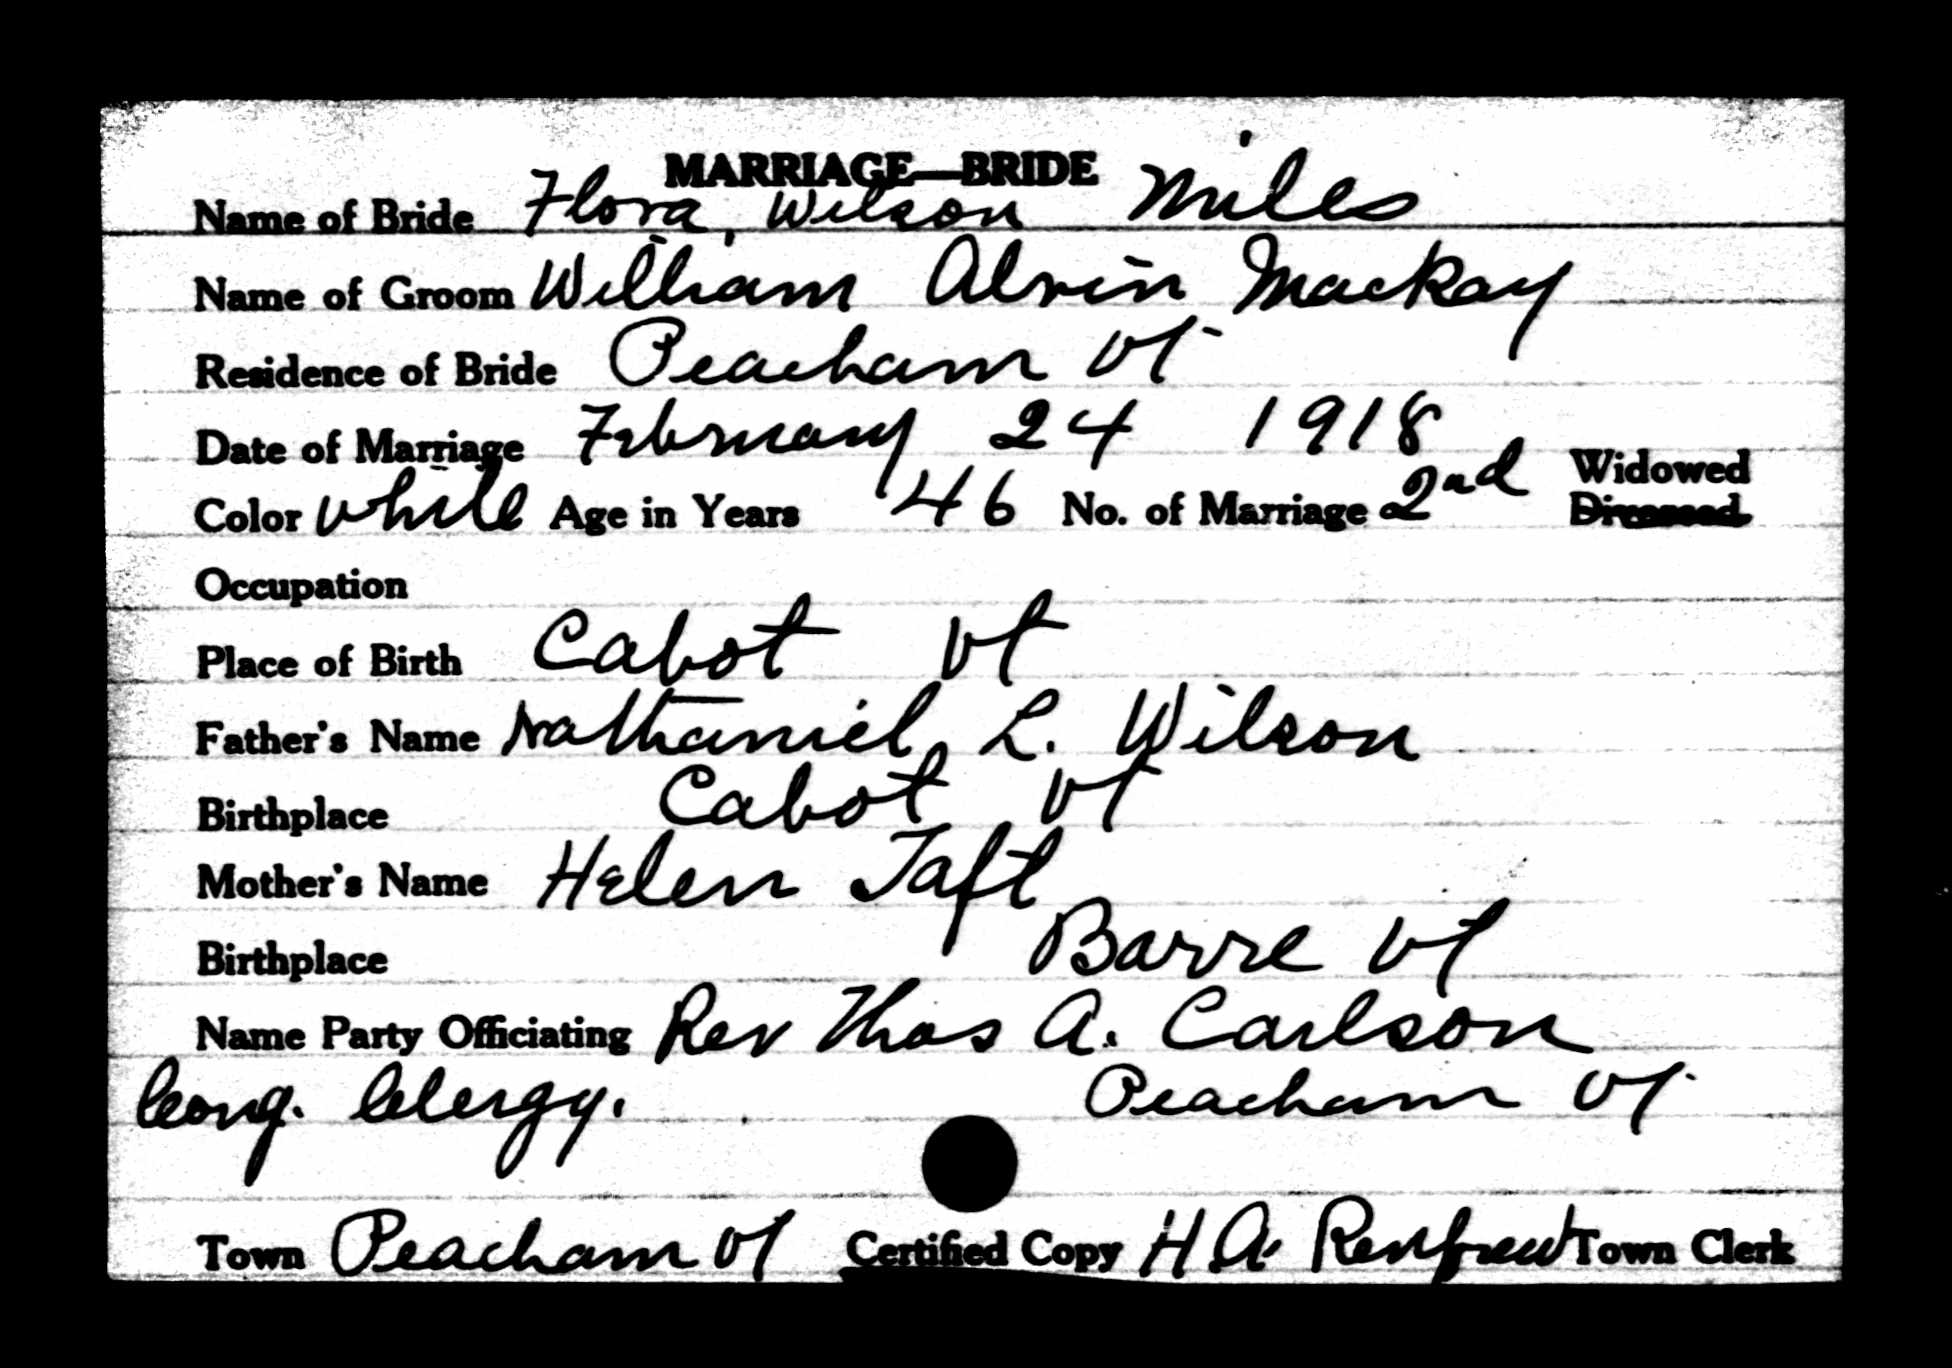 MARRIAGE—BRIDE
Name of Bride Flora, Wilson Miles
Name of Groom William Alvin Mackay
Residence of Bride Peacham Vt
Date of Marriage February 24 1918
Color white Age in Years 46 No. of Marriage 2nd Widowed Divorced
Occupation
Place of Birth Cabot Vt
Father's Name Nathaniel L. Wilson
Birthplace Cabot Vt
Mother's Name Helen Taft
Birthplace Barre Vt
Name Party Officiating Rev Thos A. Carlson
Cong. Clergy. Peacham Vt
Town Peacham Vt Certified Copy H A. Renfrew Town Clerk